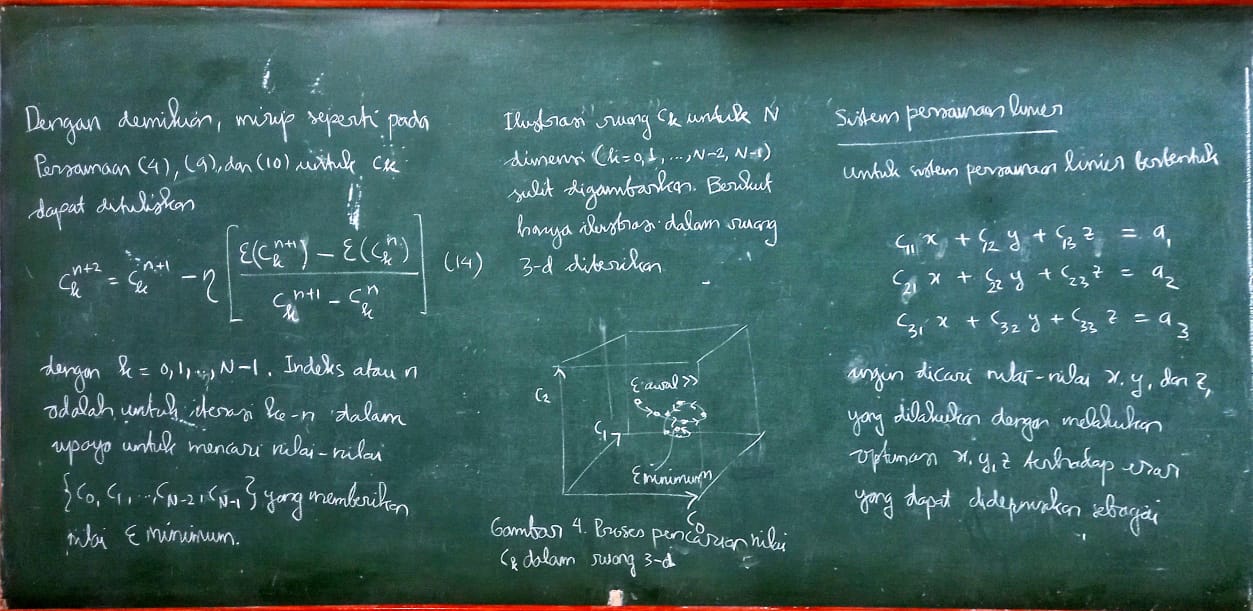 Dengan demikian, mirip seperti pada
Persamaan (4), (9), dan (10) untuk c_k
dapat dituliskan
c_k^{n+2} = c_k^{n+1} - η [ (ε(c_k^{n+1}) - ε(c_k^n)) / (c_k^{n+1} - c_k^n) ] (14)
dengan k = 0, 1, ..., N-1. Indeks atau n
adalah untuk iterasi ke-n dalam
upaya untuk mencari nilai-nilai
{c_0, c_1, ..., c_{N-2}, c_{N-1}} yang memberikan
nilai ε minimum.
Ilustrasi ruang c_k untuk N
dimensi (k=0, 1, ..., N-2, N-1)
sulit digambarkan. Berikut
hanya ilustrasi dalam ruang
3-d diberikan
c_2
ε awal >>
c_1
ε minimum
c_0
Gambar 4. Proses pencarian nilai
c_k dalam ruang 3-d
Sistem persamaan linier
untuk sistem persamaan linier berbentuk
c_{11} x + c_{12} y + c_{13} z = a_1
c_{21} x + c_{22} y + c_{23} z = a_2
c_{31} x + c_{32} y + c_{33} z = a_3
ingin dicari nilai-nilai x, y, dan z,
yang dilakukan dengan melakukan
optimasi x, y, z terhadap
yang dapat didefinisikan sebagai